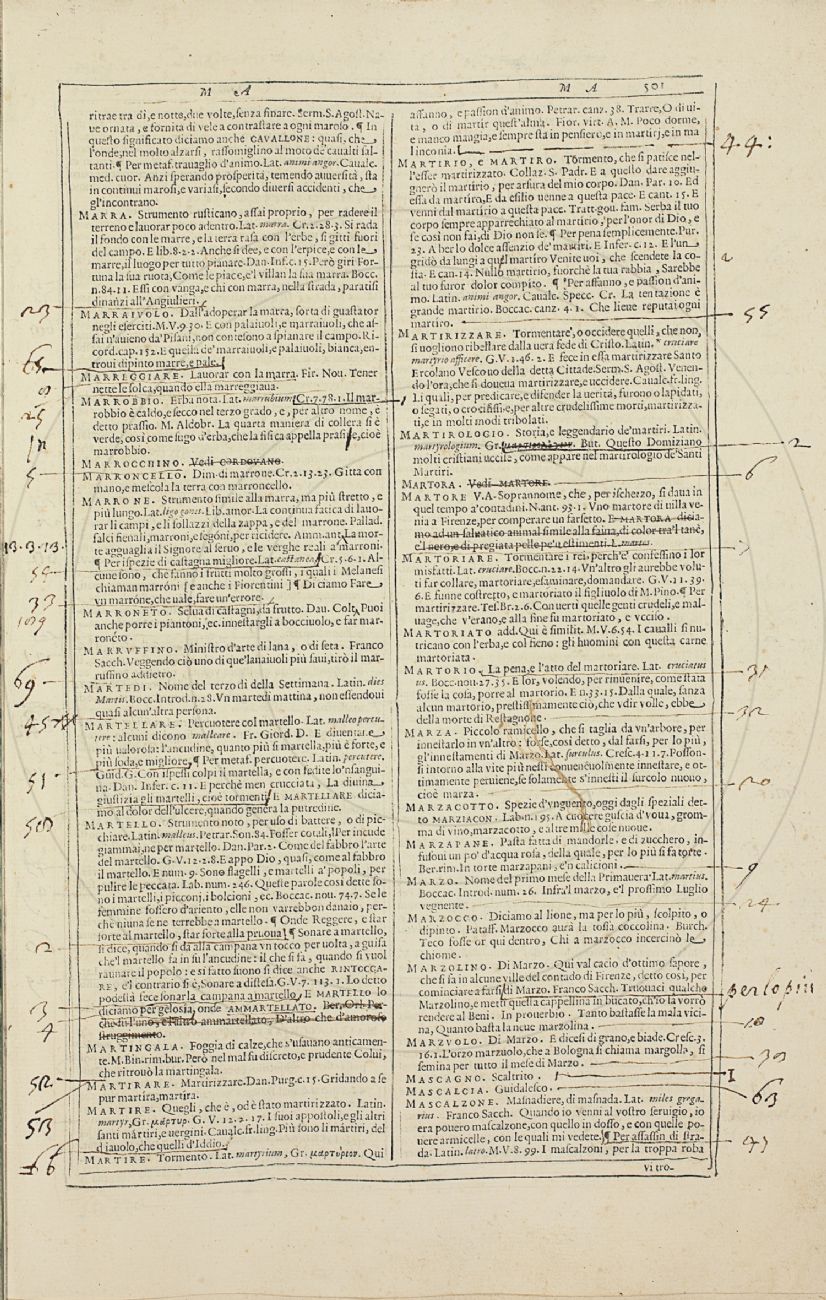 M A
ritrae tra dì, e notte, due volte, ſenza finare. Serm. S. Agoſt. Na-
ue ornata, e fornita di vele a contraſtare a ogni maroſo. ¶ In
queſto ſignificato diciamo anche CAVALLONE: quaſi, che
l'onde, nel molto alzarſi, raſſomiglino al moto de' caualli ſal-
tanti. ¶ Per metaf. trauaglio d'animo. Lat. animi angor. Caualc.
med. cuor. Anzi ſperando proſperità, temendo auuerſità, ſta
in continui maroſi, e variaſi, ſecondo diuerſi accidenti, che
gl'incontrano.
MARRA. Strumento ruſticano, aſſai proprio, per radere il
terreno e lauorar poco adentro. Lat. marra. Cr. 2. 28. 3. Si rada
il fondo con le marre, e la terra raſa con l'erbe, ſi gitti fuori
del campo. E lib. 8-2-2. Anche ſi dee, e con l'erpice, e con le
marre, il luogo per tutto pianare. Dan. Inf. c. 15. Però giri For-
tuna la ſua ruota, Come le piace, e 'l villan la ſua marra. Bocc.
n. 84. 11. Eſſi con vanga, e chi con marra, nella ſtrada, paratiſi
dinanzi all'Angiulieri.
MARRAIVOLO. Dall'adoperar la marra, ſorta di guaſtator
negli eſerciti. M. V. 9. 30. E con palaiuoli, e marraiuoli, che aſ-
ſai n'auieno da' Piſani, non conteſono a ſpianare il campo. Ri-
cord. cap. 152. E quella de' marraiuoli, e palaiuoli, bianca, en-
troui dipinto marre, e pale.
MARREGGIARE. Lauorar con la marra. Fir. Nou. Tener
nette le ſolca, quando ella marreggiaua.
MARROBBIO. Erba nota. Lat. marrubium. Cr. 7. 78. 1. Il mar-
robbio è caldo, e ſecco nel terzo grado, e, per altro nome, è
detto praſſio. M. Aldobr. La quarta maniera di collera ſi è
verde, così come ſugo d'erba, che la fiſica appella praſiſe, cioè
marrobbio.
MARROCCHINO. Vedi CORDOVANO.
MARRONCELLO. Dim. di marrone. Cr. 2. 13. 23. Gitta con
mano, e meſcola la terra con marroncello.
MARRONE. Strumento ſimile alla marra, ma più ſtretto, e
più lungo. Lat. ligo gonis. Lib. amor. La continua fatica di lauo-
rar li campi, e li ſollazzi della zappa, e del marrone. Pallad.
falci fienali, marroni, e ſegoni, per ricidere. Amm. ant. La mor-
te agguaglia il Signore al ſeruo, e le verghe reali a' marroni.
¶ Per iſpezie di caſtagna migliore. Lat. caſtanea. Cr. 5. 6. 1. Al-
cune ſono, che fanno i frutti molto groſſi, i quali i Melaneſi
chiaman marróni [e anche i Fiorentini] ¶ Diciamo Fare
vn marróne, che uale, fare vn'errore.
MARRONETO. Selua di caſtagni, da frutto. Dau. Colt. Puoi
anche porre i piantoni, ec. inneſtargli a bocciuolo, e far mar-
ronéto.
MARRVFFINO. Miniſtro d'arte di lana, o di ſeta. Franco
Sacch. Veggendo ciò uno di que' lanaiuoli più ſaui, tirò il mar-
ruſſino addietro.
MARTEDI. Nome del terzo dì della Settimana. Latin. dies
Martis. Bocc. Introd. n. 28. Vn martedì mattina, non eſſendoui
quaſi alcun'altra perſona.
MARTELLARE. Percuotere col martello. Lat. malleo percu-
tere: alcuni dicono malleare. Fr. Giord. D. E diuentae
più ualoroſa: l'ancudine, quanto più ſi martella, più è forte, e
più ſoda, e migliore. ¶ Per metaf. percuotere. Latin. percutere.
Guid. G. Con iſpeſſi colpi il martella, e con fedite lo 'nſangui-
na. Dan. Infer. c. 11. E perchè men crucciati, La diuina
giuſtizia gli martelli, cioè tormenti. E MARTELLARE dicia-
mo al dolor dell'ulcere, quando genera la putredine.
MARTELLO. Strumento noto, per uſo di battere, o di pic-
chiare. Latin. malleus. Petrar. Son. 84. Foſſer cotali, Per incude
giammai, ne per martello. Dan. Par. 2. Come del fabbro l'arte
del martello. G. V. 12. 2. 8. E appo Dio, quaſi, come al fabbro
il martello. E num. 9. Sono flagelli, e martelli a' popoli, per
pulire le peccata. Lab. num. 246. Queſte parole così dette ſo-
no i martelli, i picconi, i bolcioni, ec. Boccac. nou. 74. 7. Se le
femmine foſſero d'ariento, elle non varrebbon danaio, per-
chè niuna ſe ne terrebbe a martello. ¶ Onde Reggere, e ſtar
forte al martello, ſtar forte alla pruoua. ¶ Sonare a martello,
ſi dice, quando ſi dà alla campana vn tocco per uolta, a guiſa
che 'l martello fa in ſu l'ancudine: il che ſi fa, quando ſi vuol
raunare il popolo: e sì fatto ſuono ſi dice anche RINTOCCA-
RE, e 'l contrario ſi è, Sonare a diſteſa. G. V. 7. 113. 1. Lo detto
podeſtà fece ſonar la campana a martello. E MARTELLO lo
diciamo per geloſia, onde AMMARTELLATO. Ber. Orl. Per-
che di l'uno, e l'altro ammartellato, D'altro che d'amoroſo
ſtruggimento.
MARTINGALA. Foggia di calze, che s'uſauano anticamen-
te. M. Bin. rim. bur. Però nel mal fu diſcreto, e prudente Colui,
che ritrouò la martingala.
MARTIRARE. Martirizzare. Dan. Purg. c. 15. Gridando a ſe
pur martira, martira.
MARTIRE. Quegli, che è, od è ſtato martirizzato. Latin.
martyr, Gr. μάρτυρ. G. V. 12. 2. 17. I ſuoi appoſtoli, e gli altri
ſanti màrtiri, e uergini. Caualc. fr. ling. Più ſono li màrtiri, del
diauolo, che quelli d'Iddio.
MARTIRE. Tormento. Lat. martyrium, Gr. μαρτύριον. Qui
23
65
8
25
5
13.3.13.
55
33
1089
69
457
51
2
3
4
52
53
66
M A
501
affanno, e paſſion d'animo. Petrar. canz. 38. Trarre, O di ui-
ta, o di martir queſt'alma. Fior. virt. A. M. Poco dorme,
e manco mangia, e ſempre ſta in penſiero, e in martirj, e in ma
linconia.
MARTIRIO, e MARTIRO. Tormento, che ſi patiſce nel-
l'eſſer martirizzato. Collaz. S. Padr. E a queſto dare aggiu-
gnerò il martirio, per arſura del mio corpo. Dan. Par. 10. Ed
eſſa da martiro, E da eſilio uenne a queſta pace. E cant. 15. E
venni dal martirio a queſta pace. Tratt. gou. fam. Serba il tuo
corpo ſempre apparrechiato al martirio, per l'onor di Dio, e
ſe così non fai, di Dio non ſe. ¶ Per pena ſemplicemente. Pur.
23. A ber lo dolce aſſenzio de' martiri. E Infer. c. 12. E l'un
gridò da lungi a qual martiro Venite uoi, che ſcendete la co-
ſta. E can. 14. Nullo martirio, fuorchè la tua rabbia, Sarebbe
al tuo furor dolor compito. ¶ Per affanno, e paſſion d'ani-
mo. Latin. animi angor. Caualc. Specc. Cr. La tentazione è
grande martirio. Boccac. canz. 4. 1. Che lieue reputai ogni
martiro.
MARTIRIZZARE. Tormentare, o occidere quelli, che non,
ſi uogliono ribellare dalla uera fede di Criſto. Latin. cruciare
martyrio afficere. G. V. 1. 46. 2. E fece in eſſa martirizzare Santo
Ercolano Veſcouo della detta Cittade. Serm. S. Agoſt. Venen-
do l'ora, che ſi doueua martirizzare, e uccidere. Caualc. fr. ling.
Li quali, per predicare, e difender la uerità, furono o lapidati,
o ſegati, o crocifiſſi, e, per altre crudeliſſime morti, martirizza-
ti, e in molti modi tribolati.
MARTIROLOGIO. Storia, e leggendario de' martiri. Latin.
martyrologium. Gr. But. Queſto Domiziano
molti criſtiani ucciſe, come appare nel martirologio de' Santi
Martiri.
MARTORA. Vedi MARTORE.
MARTORE V. A. Soprannome, che, per iſcherzo, ſi daua in
quel tempo a' contadini. N. ant. 93. 1. Vno martore di uilla ve-
nia a Firenze, per comperare un farſetto. E MARTORA dicia-
mo ad un ſaluatico animal ſimile alla faina, di color tra 'l tanè,
e 'l nero, e di pregiata pelle pe' ueſtimenti. L. martes.
MARTORIARE. Tormentare i rei, perch'e' confeſſino i lor
misfatti. Lat. cruciare. Bocc. n. 22. 14. Vn'altro gli aurebbe volu-
ti far collare, martoriare, eſaminare, domandare. G. V. 11. 39.
6. E funne coſtretto, e martoriato il figliuolo di M. Pino. ¶ Per
martirizzare. Teſ. Br. 2. 6. Conuerti quelle genti crudeli, e mal-
uage, che v'erano, e alla fine fu martoriato, e ucciſo.
MARTORIATO add. Qui è ſimilit. M. V. 6. 54. I caualli ſi nu-
tricano con l'erba, e col fieno: gli huomini con queſta carne
martoriata.
MARTORIO. La pena, e l'atto del martoriare. Lat. cruciatus
us. Bocc. nou. 27. 35. E lor, volendo, per rinuenire, come ſtata
foſſe la coſa, porre al martorio. E n. 33. 15. Dalla quale, ſanza
alcun martorio, preſtiſſimamente ciò, che vdir volle, ebbe
della morte di Reſtagnone.
MARZA. Piccolo ramicello, che ſi taglia da vn'arbore, per
inneſtarlo in vn'altro: forſe, così detto, dal farſi, per lo più,
gl'inneſtamenti di Marzo. Lat. ſurculus. Creſc. 4. 11. 7. Poſſon-
ſi intorno alla vite più neſti conueneuolmente inneſtare, e ot-
timamente peruiene, ſe ſolamente s'inneſti il ſurcolo nuouo,
cioè marza.
MARZACOTTO. Spezie d'vnguento, oggi dagli ſpeziali det-
to MARZIACON. Lab. n. 195. A cuocere guſcia d'voua, grom-
ma di vino, marzacotto, e altre mille coſe nuoue.
MARZAPANE. Paſta fatta di mandorle, e di zucchero, in-
fuſoui un po' d'acqua roſa, della quale, per lo più ſi fa torte.
Ber. rim. In torte marzapani, e 'n calicioni.
MARZO. Nome del primo meſe della Primauera. Lat. martius.
Boccac. Introd. num. 26. Infra 'l marzo, e 'l proſſimo Luglio
vegnente.
MARZOCCO. Diciamo al lione, ma per lo più, ſcolpito, o
dipinto. Pataff. Marzocco aurà la toſſa coccolina. Burch.
Teco foſſe or qui dentro, Chi a marzocco incercinò le
chiome.
MARZOLINO. Di Marzo. Qui val cacio d'ottimo ſapore,
che ſi fa in alcune ville del contado di Firenze, detto così, per
cominciare a farſi di Marzo. Franco Sacch. Truouaci qualche
Marzolino, e metti quella cappellina in bucato, ch'io la vorrò
rendere al Beni. In prouerbio. Tanto baſtaſſe la mala vici-
na, Quanto baſta la neue marzolina.
MARZVOLO. Di Marzo. E diceſi di grano, e biade. Creſc. 3.
16. 1. L'orzo marzuolo, che a Bologna ſi chiama margolla, ſi
ſemina per tutto il meſe di Marzo.
MASCAGNO. Scaltrito.
MASCALCIA. Guidaleſco.
MASCALZONE. Maſnadiere, di maſnada. Lat. miles grega-
rius. Franco Sacch. Quando io venni al voſtro ſeruigio, io
era pouero maſcalzone, con quello in doſſo, e con quelle po-
uere armicelle, con le quali mi vedete. ¶ Per aſſaſſin di ſtra-
da. Latin. latro. M. V. 8. 99. I maſcalzoni, per la troppa roba
vitto-
44:
2
55
2
6
31
32
20
9
24
per lo piu
10
30
I
63
47